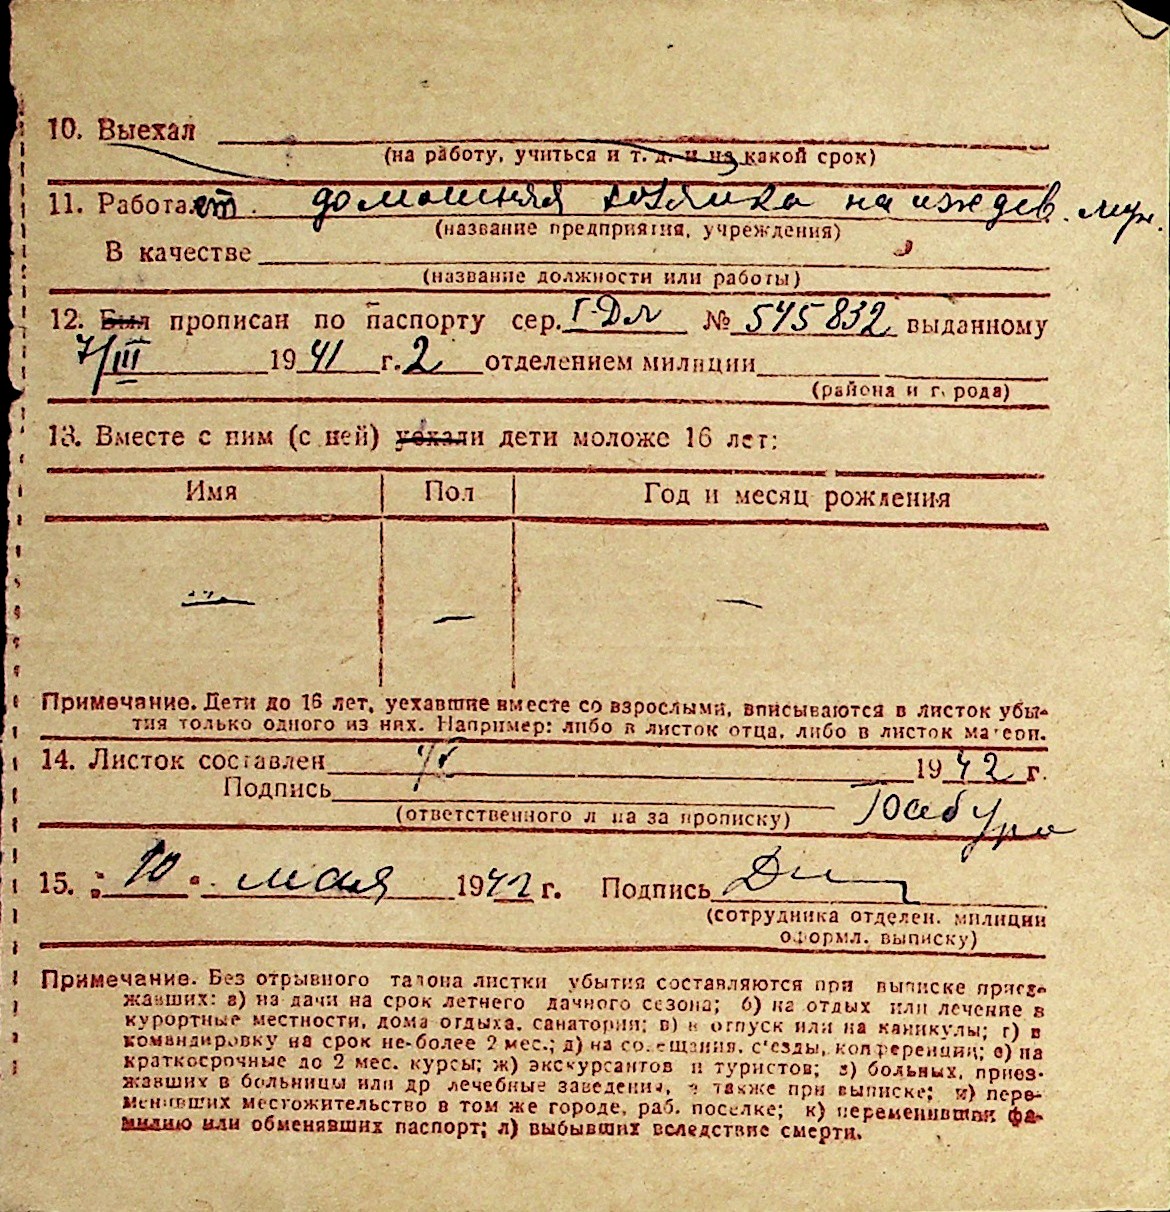 10. Выехал
(на работу, учиться и т. д. и на какой срок)
11. Работает. домашняя хозяйка на иждев. муж.
(название предприятия, учреждения)
В качестве
(название должности или работы)
12. Был прописан по паспорту сер. № 545832 выданному
7/III 1941 г. 2 отделением милиции
(района и города)
13. Вместе с ним (с ней) уехали дети моложе 16 лет:
Имя Пол Год и месяц рождения
— — —
Примечание. Дети до 16 лет, уехавшие вместе со взрослыми, вписываются в листок убы-
тия только одного из них. Например: либо в листок отца, либо в листок матери.
14. Листок составлен 1942 г.
Подпись
(ответственного лица за прописку)
15. "10" мая 1942 г. Подпись
(сотрудника отделен. милиции
оформл. выписку)
Примечание. Без отрывного талона листки убытия составляются при выписке приез-
жавших: а) на дачи на срок летнего дачного сезона; б) на отдых или лечение в
курортные местности, дома отдыха, санатории; в) в отпуск или на каникулы; г) в
командировку на срок не-более 2 мес.; д) на совещания, с'езды, конференции; е) на
краткосрочные до 2 мес. курсы; ж) экскурсантов и туристов; з) больных, приез-
жавших в больницы или др лечебные заведения, а также при выписке; и) пере-
менивших местожительство в том же городе, раб. поселке; к) переменивших фа-
милию или обменявших паспорт; л) выбывших вследствие смерти.